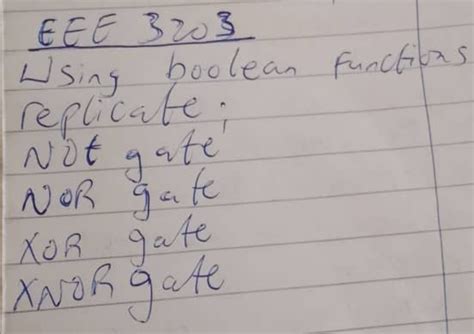 EEE 3203
Using boolean functions
replicate;
NOt gate
NOR gate
XOR gate
XNOR gate